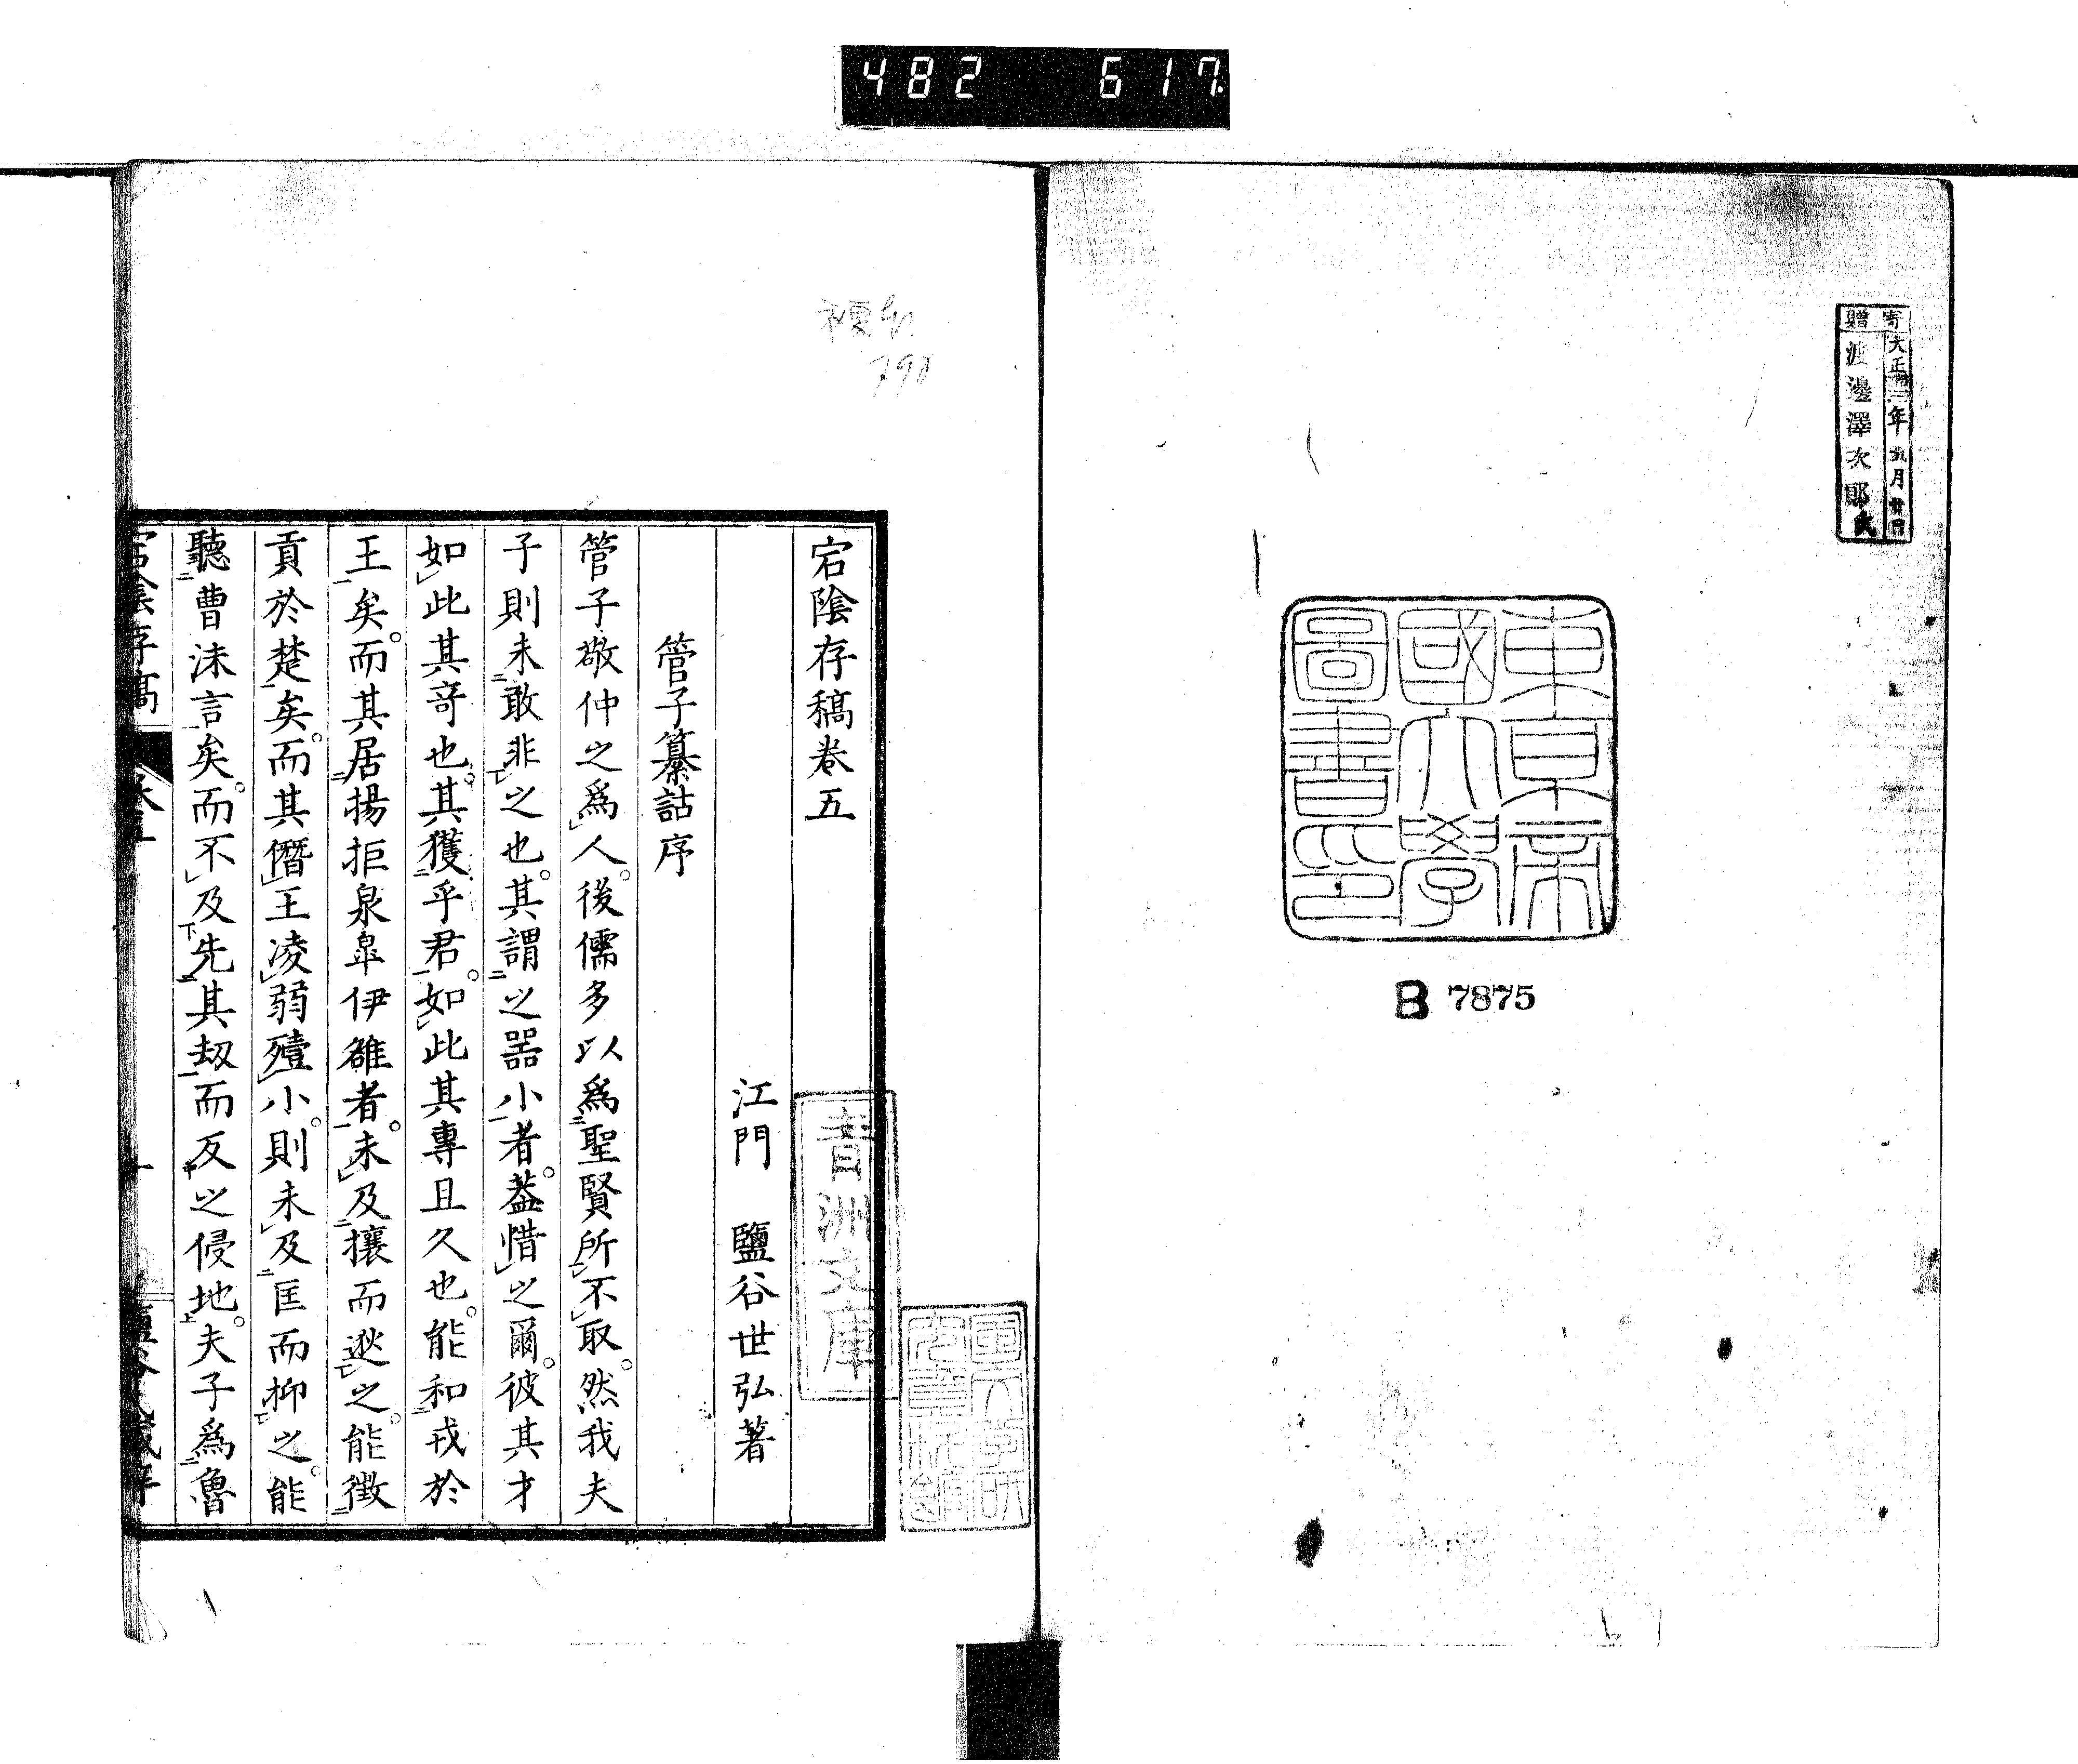 482 617
寄贈
大正 年 月
渡邊澤次郎氏
東京帝
國大學
圖書印
B 7875
791
宕陰存稿卷五
江門 鹽谷世弘著
管子纂詁序
管子敬仲之爲人。後儒多以爲聖賢所不取。然我夫
子則未敢非之也。其謂之器小者。葢惜之爾。彼其才
如此其奇也。其獲乎君。如此其專且久也。能和戎於
王矣。而其居揚拒泉皐伊雒者。未及攘而逖之。能徵
貢於楚矣。而其僭王凌弱殪小。則未及匡而抑之。能
聽曹沬言矣。而不及先其劫而反之侵地。夫子爲魯
宕陰存稿
卷五
一
青洲文庫